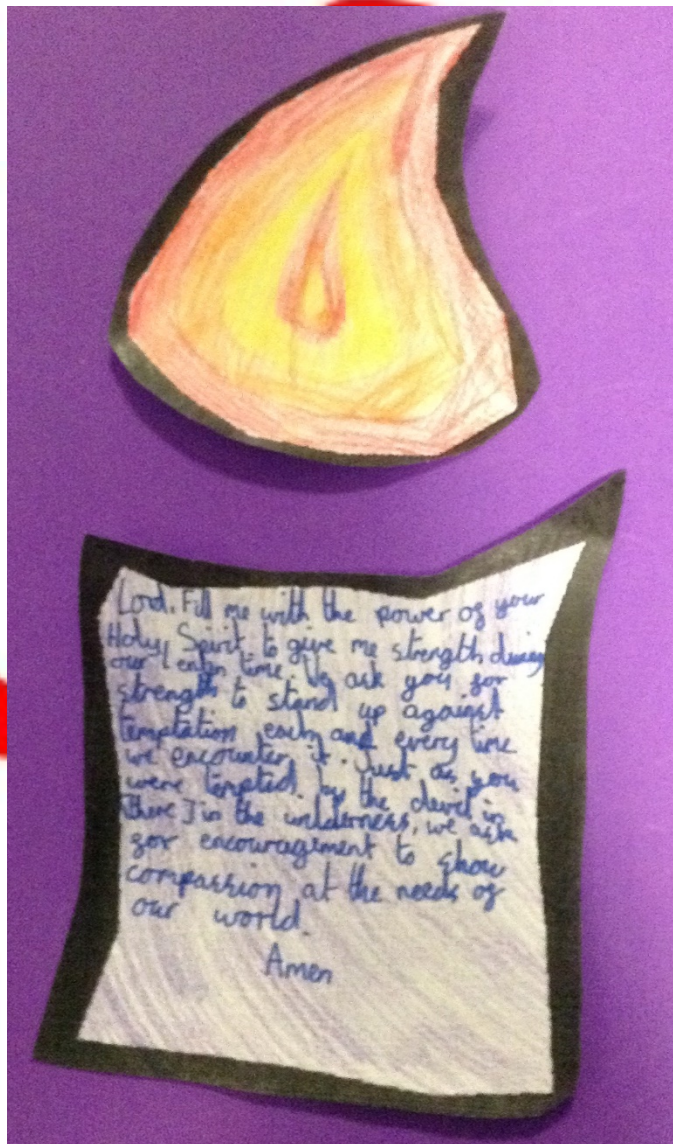 Lord. Fill me with the power of your
Holy Spirit to give me strength during
our lenten time. We ask you for
strength to stand up against
temptation each and every time
we encounter it. Just as you
were tempted by the devil in
[there] in the wilderness, we ask
for encouragement to show
compassion at the needs of
our world.
Amen